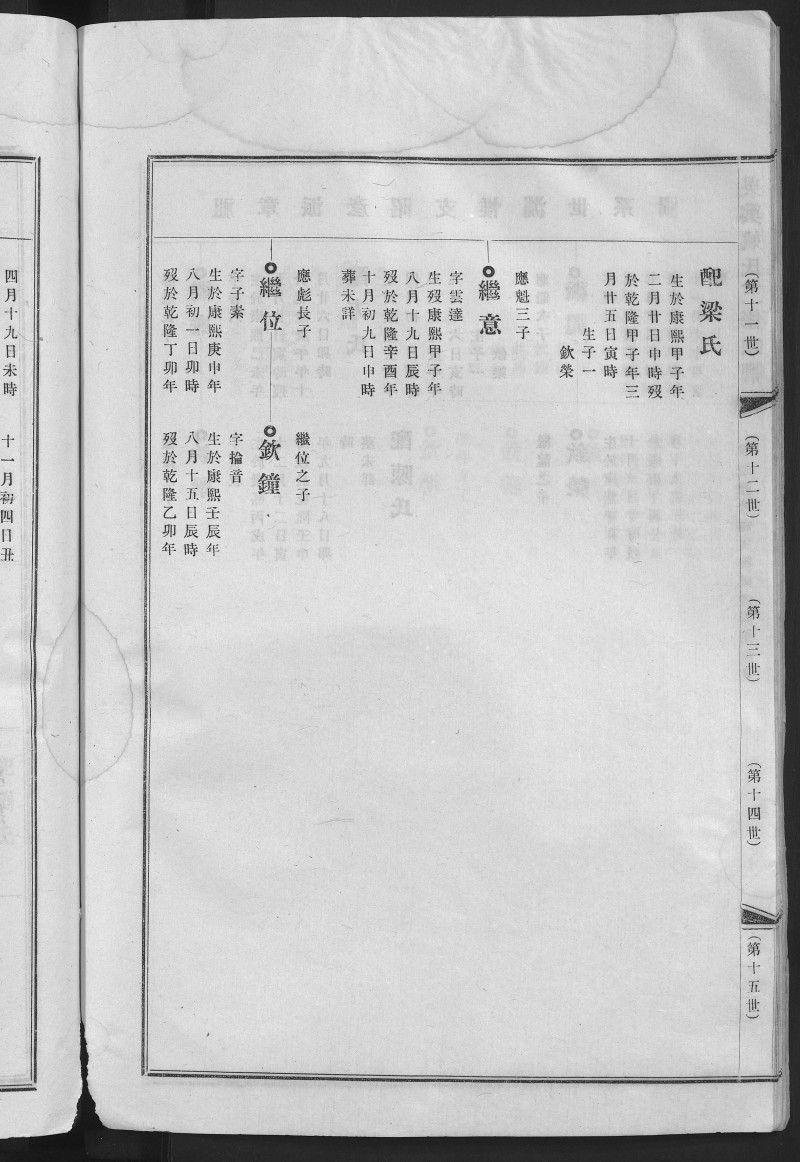 (第十一世)
(第十二世)
(第十三世)
(第十四世)
(第十五世)
配梁氏
生於康熙甲子年
二月廿日申時歿
於乾隆甲子年三
月廿五日寅時
生子一
欽榮
應魁三子
繼意
字雲達
生歿康熙甲子年
八月十九日辰時
歿於乾隆辛酉年
十月初九日申時
葬未詳
應彪長子
繼位
字子素
生於康熙庚申年
八月初一日卯時
歿於乾隆丁卯年
繼位之子
欽鐘
字掄音
生於康熙壬辰年
八月十五日辰時
歿於乾隆乙卯年
四月十九日未時
十一月初四日丑